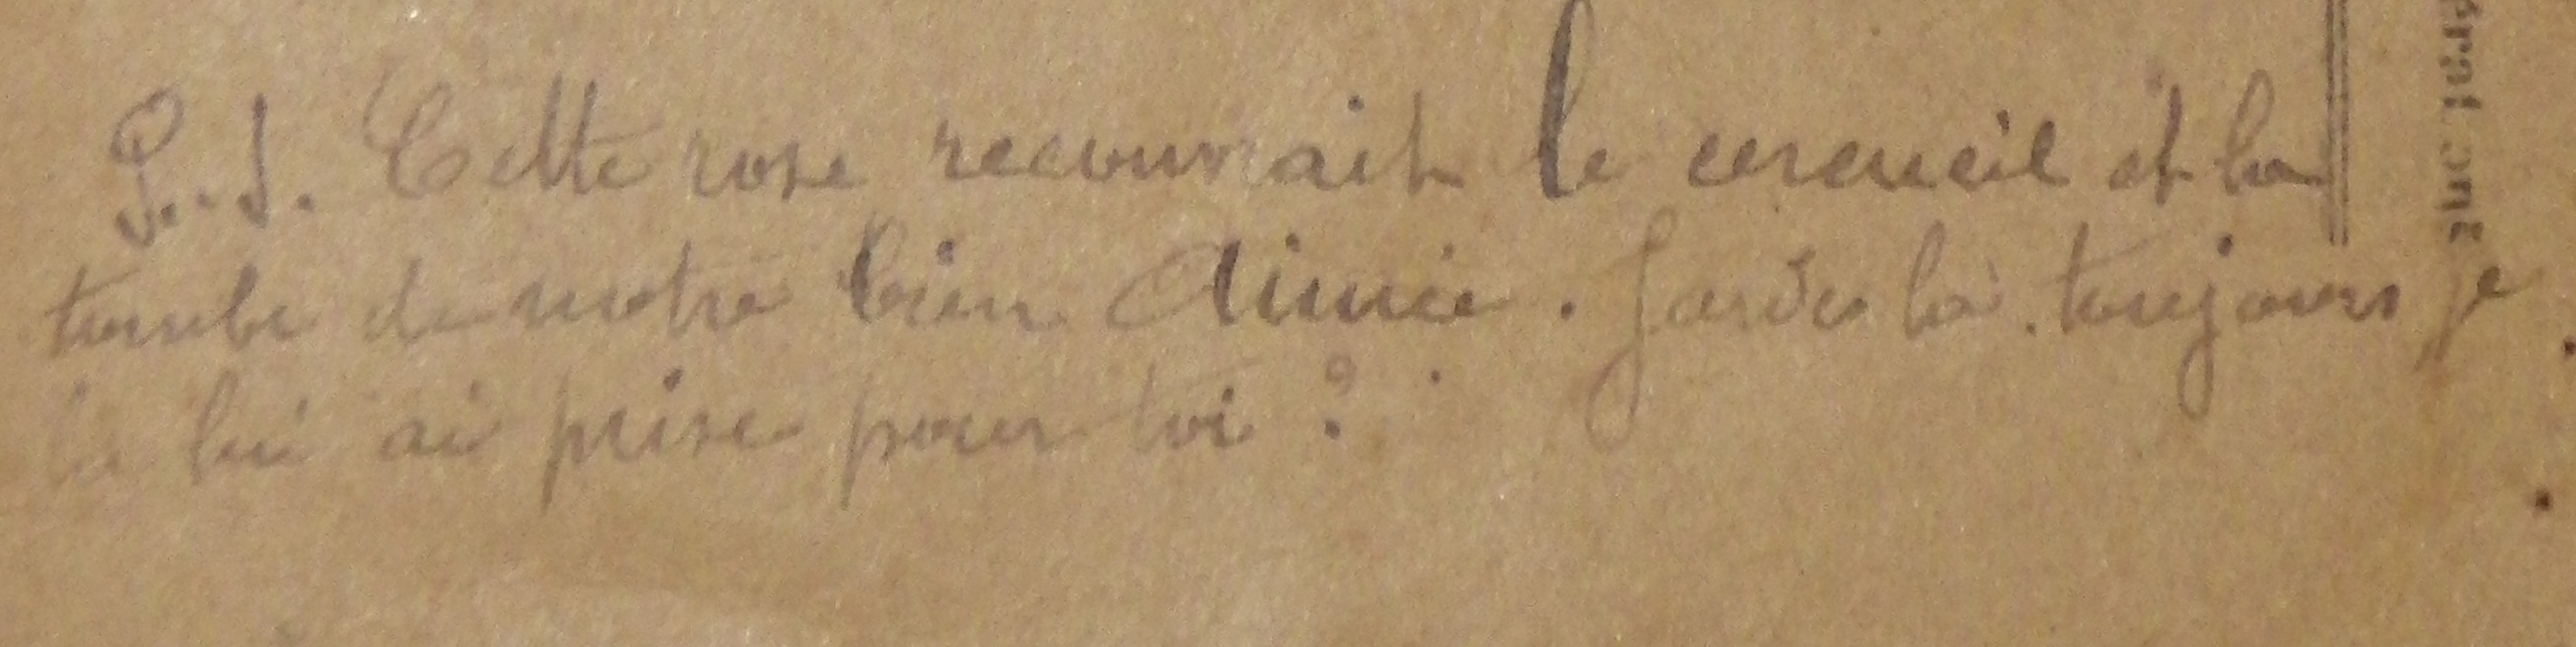 P.. S. Cette rose recouvrait le cercueil et la
tombe de notre bien Aimée. Gardes la toujours je
la lui ai prise pour toi ?.